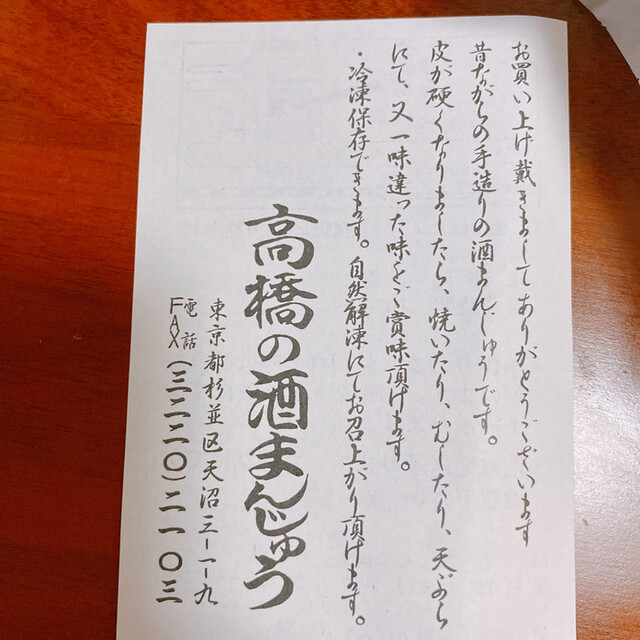 お買い上げ戴きましてありがとうございます
昔ながらの手造りの酒まんじゅうです。
皮が硬くなりましたら、焼いたり、むしたり、天ぷら
にて、又一味違った味をご賞味頂けます。
・冷凍保存できます。自然解凍にてお召上がり頂けます。
高橋の酒まんじゅう
東京都杉並区天沼三-一-九
電話
FAX(三二二〇)二一〇三